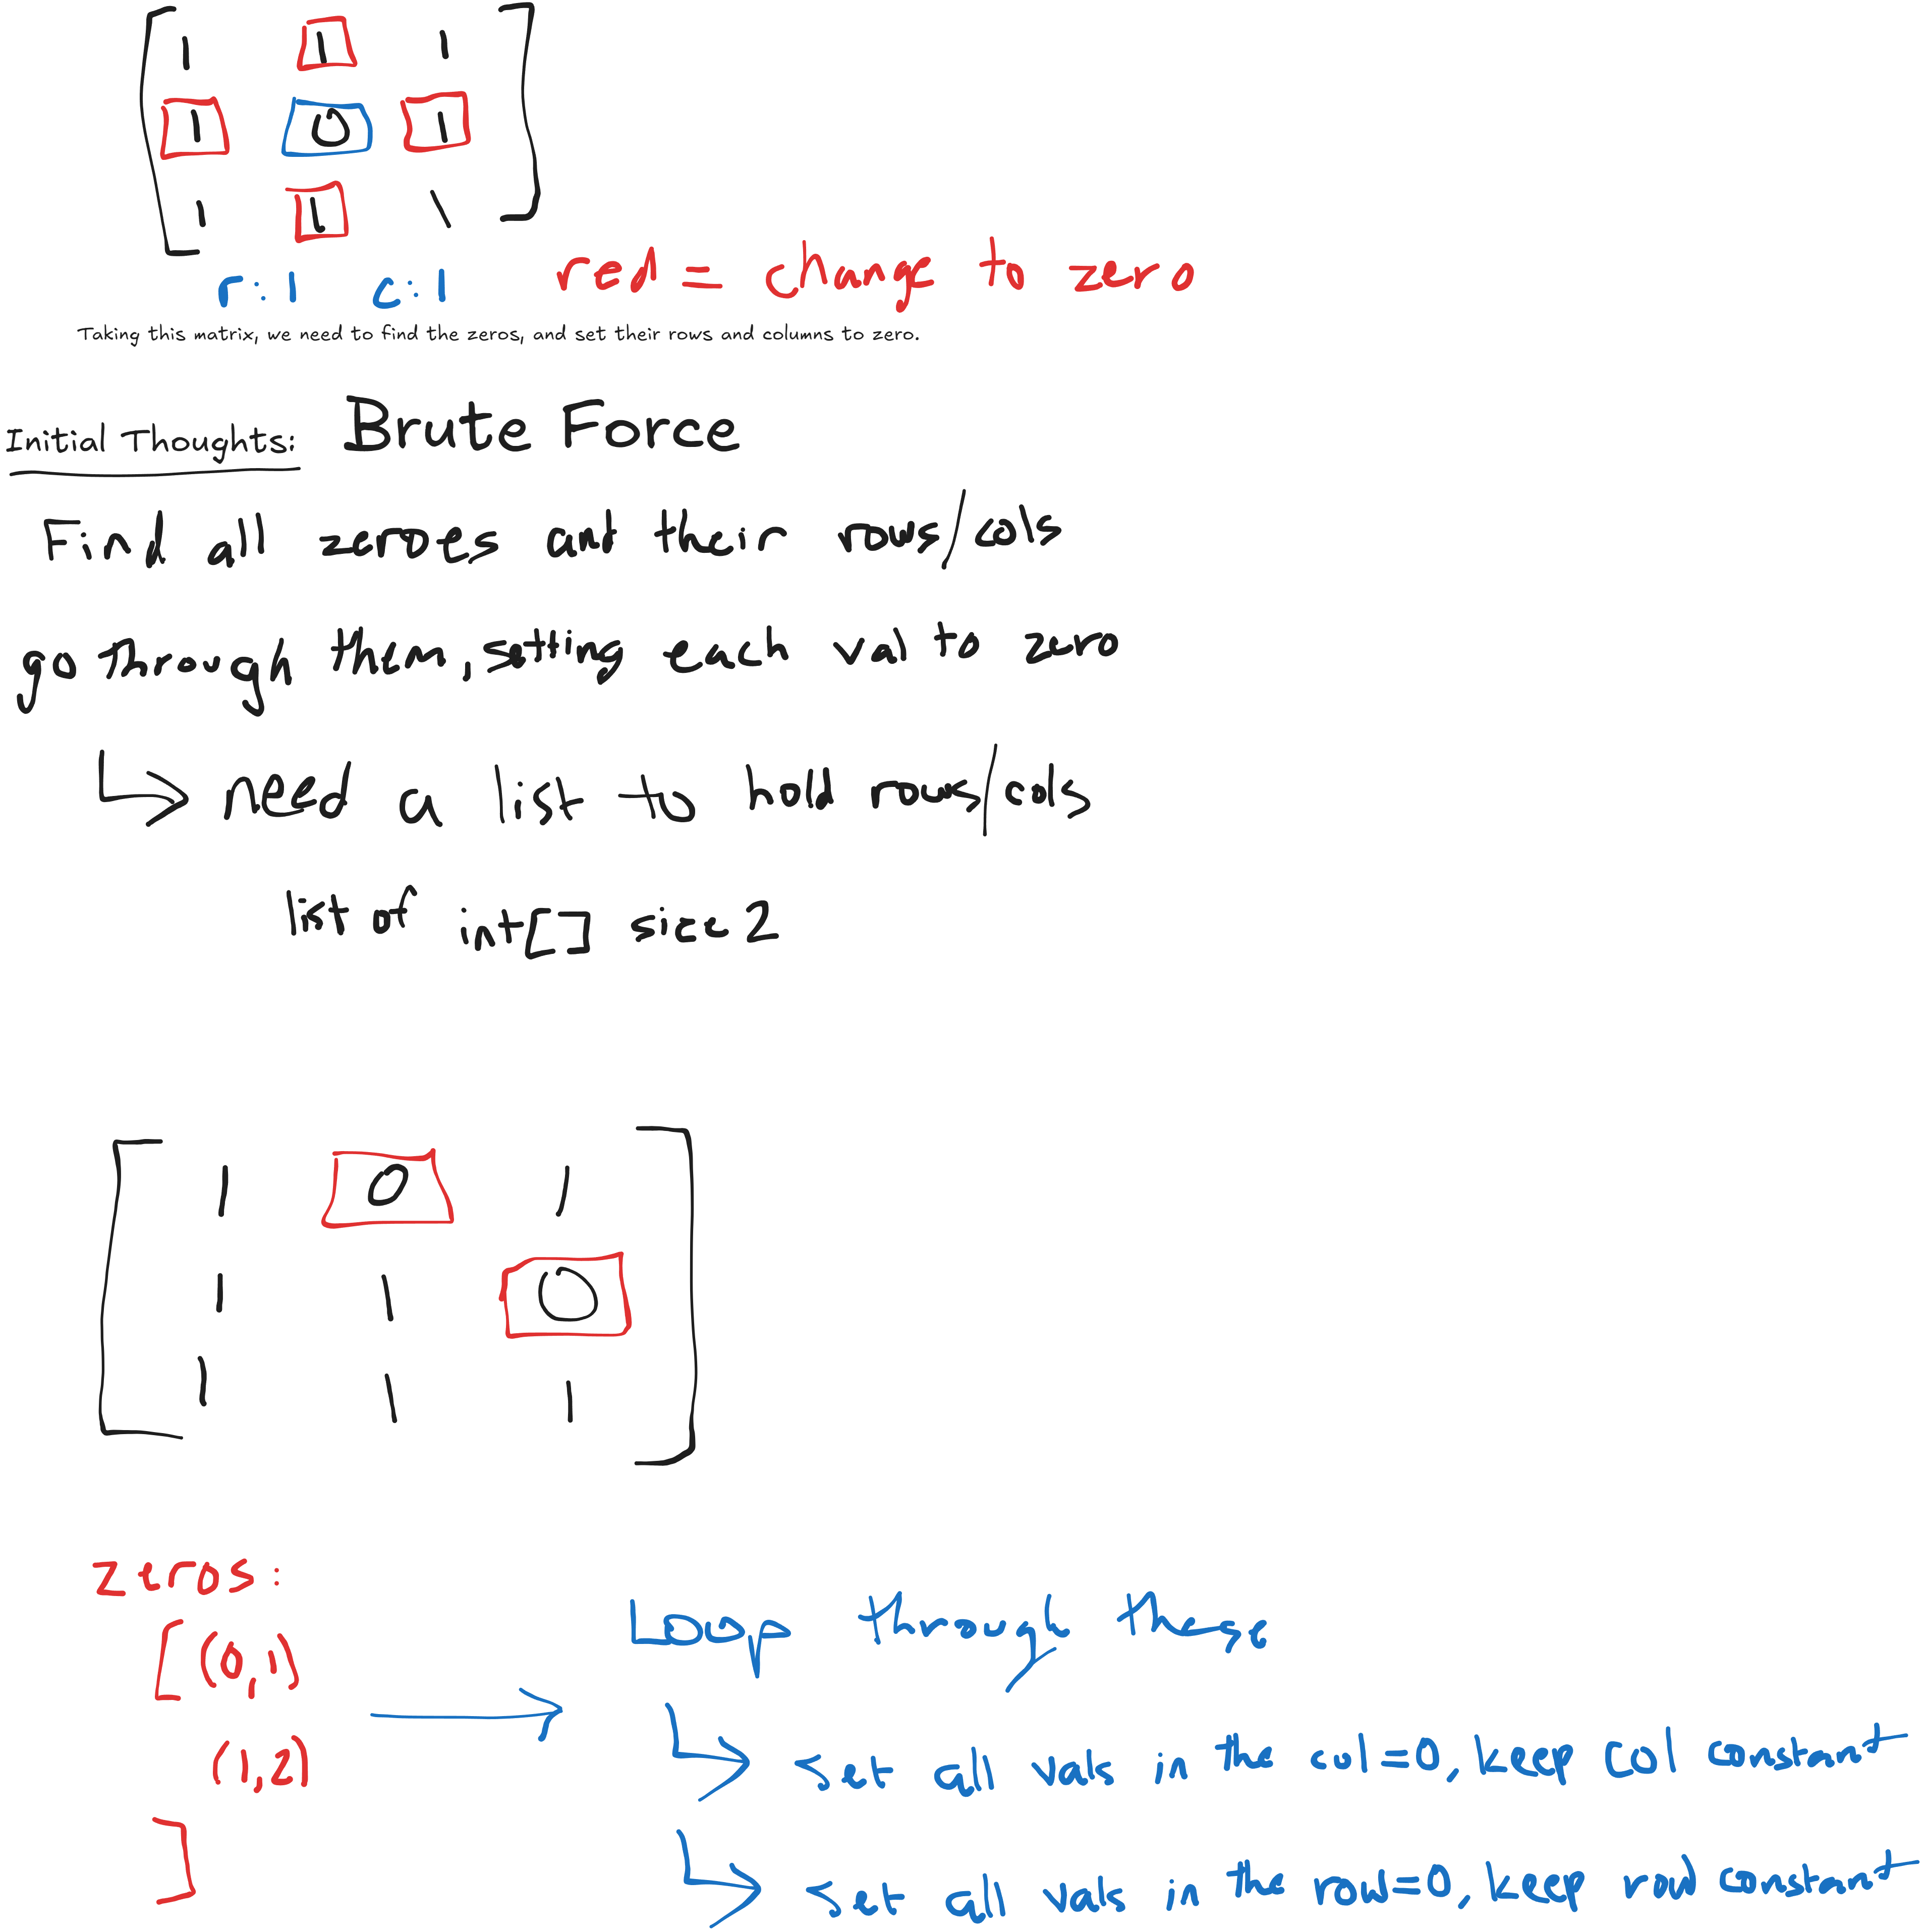 1 1 1
1 0 1
1 1 1
r:1 c:1 red = change to zero
Taking this matrix, we need to find the zeros, and set their rows and columns to zero.
Initial Thoughts: Brute Force
Find all zeroes and their rows/cols
go through them, setting each val to zero
need a list to hold rows/cols
list of int[] size 2
1 0 1
1 1 0
1 1 1
zeros:
[(0,1)
(1,2)
]
Loop through these
set all vals in the col=0, keep col constant
set all vals in the row=0, keep row constant